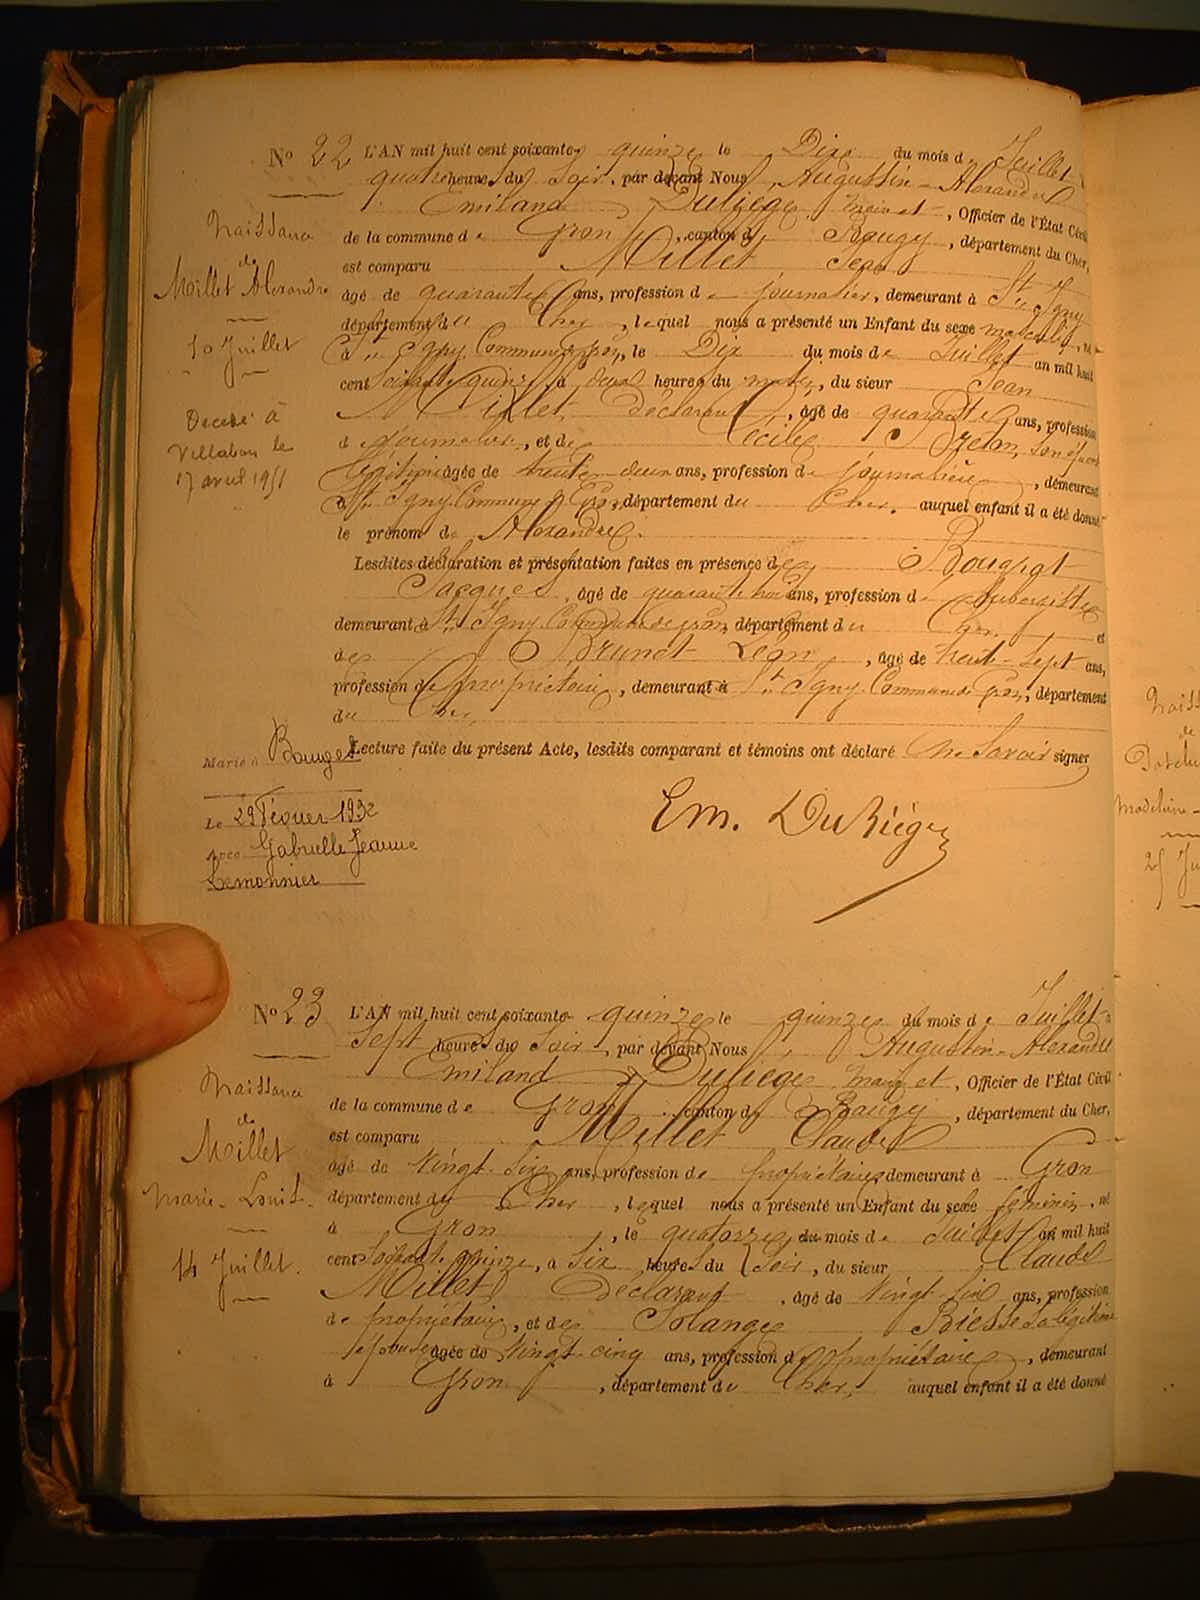 No 22 L'AN mil huit cent soixante quinze le Dix du mois de Juillet
quatre heures du Soir, par devant Nous, Augustin-Alexandre
Emiland Duliège maire et, Officier de l'État Civil
de la commune de Gron, canton de Baugy, département du Cher,
est comparu Millet Jean
âgé de quarante ans, profession de journalier, demeurant à St Igny
département du Cher, lequel nous a présenté un Enfant du sexe masculin, né
à St Igny Commune de Gron, le Dix du mois de Juillet an mil huit
cent Soixante quinze, à deux heures du matin, du sieur Jean
Millet Déclarant, âgé de quarante ans, profession
de Journalier, et de Cécile Son épouse
légitime âgée de trente-deux ans, profession de journalière, demeurant
à St Igny Commune de Gron, département du Cher, auquel enfant il a été donné
le prénom de Alexandre.
Lesdites déclaration et présentation faites en présence de Bougrat
Jacques, âgé de quarante ans, profession d'Aubergiste
demeurant à St Igny Commune de Gron, département du Cher, et
de Brunet Léon, âgé de trente-sept ans,
profession de propriétaire, demeurant à St Igny Commune de Gron, département
du Cher,
Lecture faite du présent Acte, lesdits comparant et témoins ont déclaré ne Savoir signer
Em. Duliège
Naissance
de
Millet Alexandre
10 Juillet
Décédé à
Villabon le
17 avril 1951
Marié à Bourges
Le 29 Février 1932
avec Gabrielle Jeanne
Lemonnier
No 23 L'AN mil huit cent soixante quinze le quinze du mois de Juillet à
Sept heures du Soir, par devant Nous, Augustin-Alexandre
Emiland Duliège maire et, Officier de l'État Civil
de la commune de Gron, canton de Baugy, département du Cher,
est comparu Millet Claude
âgé de Vingt-Six ans, profession de propriétaire demeurant à Gron
département du Cher, lequel nous a présenté un Enfant du sexe féminin, né
à Gron, le quatorze du mois de Juillet an mil huit
cent Soixante quinze, à Six heures du Soir, du sieur Claude
Millet Déclarant, âgé de Vingt-Six ans, profession
de propriétaire, et de Solange Biesse Sa légitime
épouse âgée de Vingt-cinq ans, profession de propriétaire, demeurant
à Gron, département du Cher, auquel enfant il a été donné
Naissance
de
Millet
Marie-Louise
14 Juillet.
de
Madeleine-